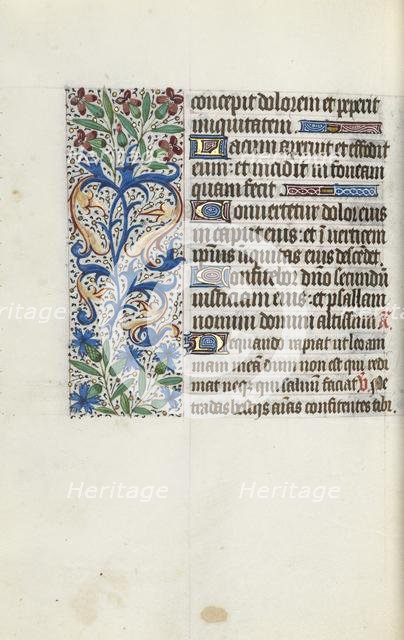 concepit dolorem et peperit
iniquitatem
Lacum aperuit et effodit
eum: et incidit in foueam
quam fecit
Conuertetur dolor eius
in caput eius: et in uerticem
ipsius iniquitas eius descēdet.
Confitebor dño secundū
iusticiam eius: et psallam
nomini domini altissimi. A.
Nequando rapiat ut leo aīam
meā dum non est qui redi
mat neqz qui saluū faciat. V. Ne
tradas bestiis aīas confitentes tibi.
Heritage Heritage
Heritage Heritage